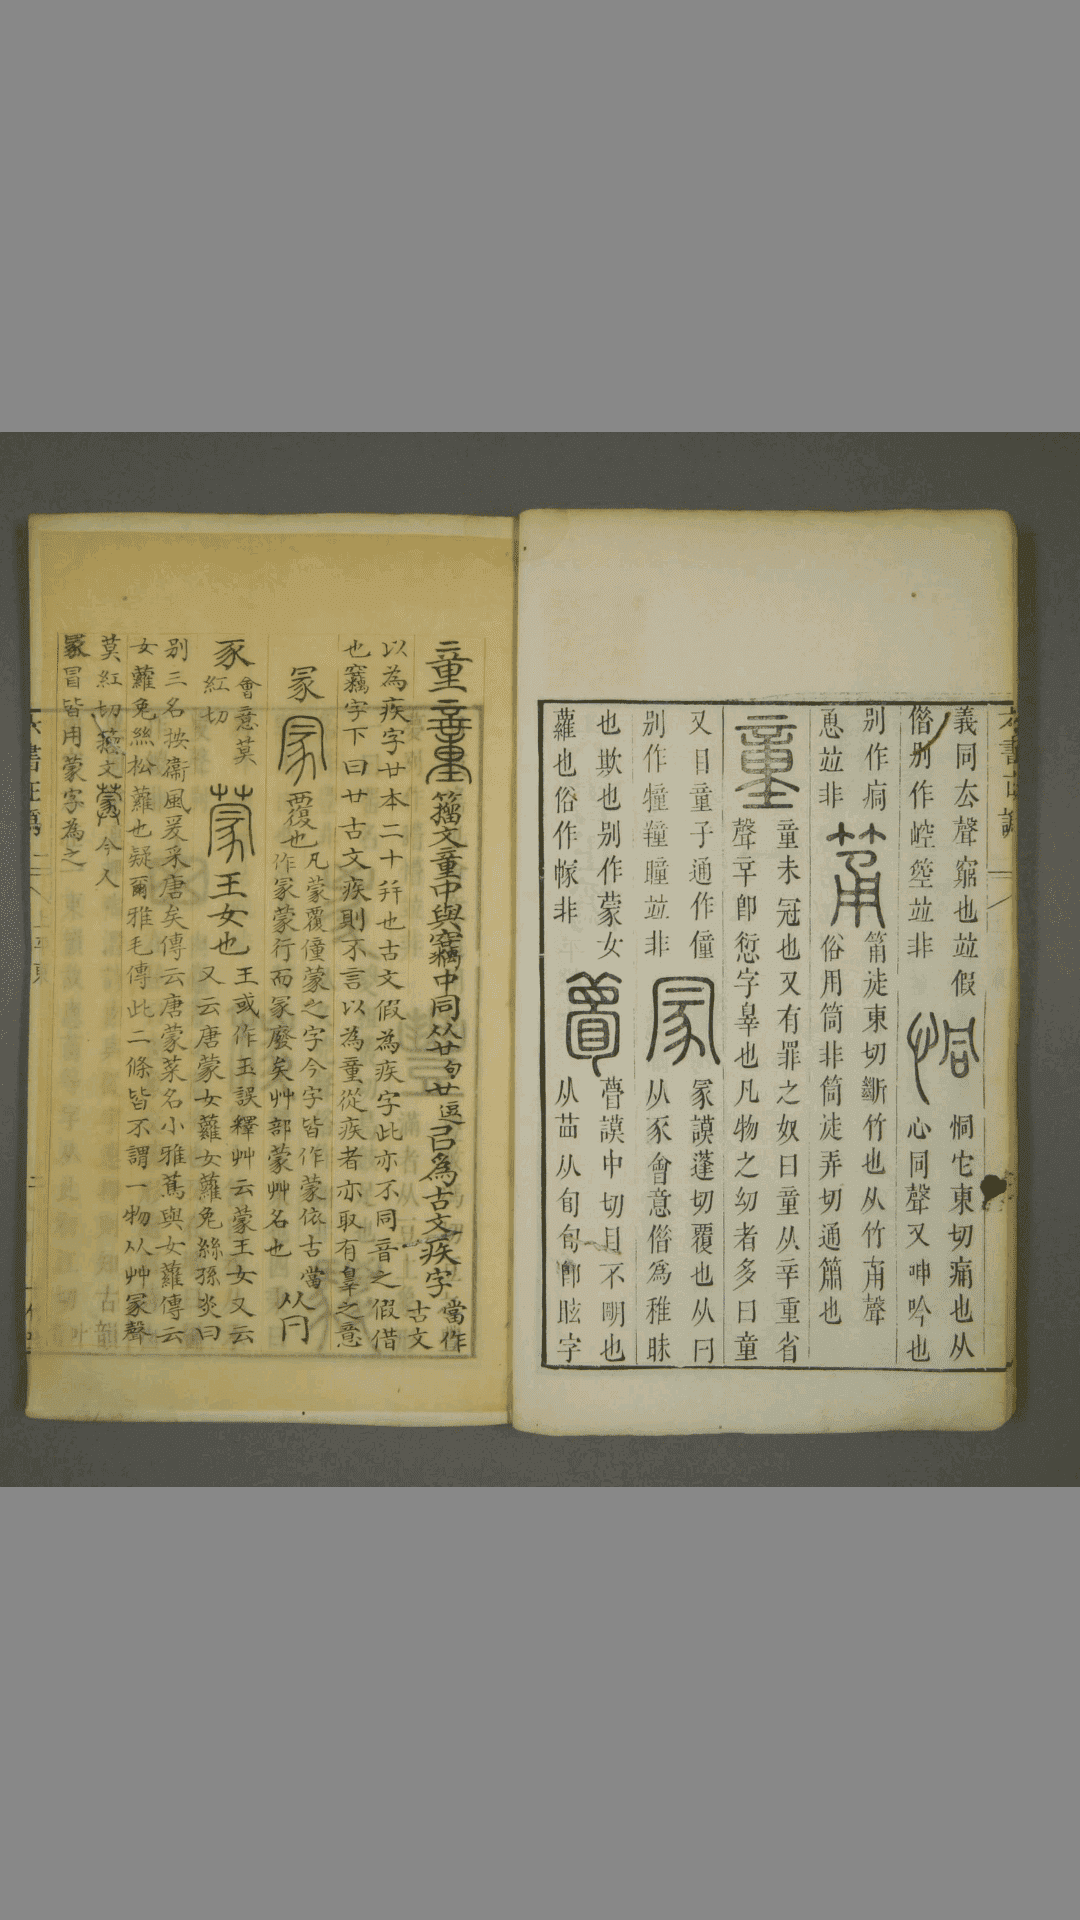 義同厺聲竆也竝假
偺别作崆箜竝非
恫 恫佗東切痛也从
心同聲又呻吟也
别作痌
恿竝非
筩 筩徒東切斷竹也从竹甬聲
俗用筒非筒徒弄切通簫也
童 童未冠也又有罪之奴曰童从䇂重省
聲䇂卽愆字辠也凡物之幼者多曰童
又目童子通作僮
别作犝羵瞳竝非
冡 冡謨蓬切覆也从冃
从豕會意偺爲稚昧
也欺也别作蒙女
蘿也俗作幏非
瞢 瞢謨中切目不明也
从苜从旬旬卽眩字
童 童 籒文童中與竊中同从廿句廿逗㠯為古文疾字 當作
古文
以為疾字廿本二十幷也古文假為疾字此亦不同音之假借
也竊字下曰廿古文疾則不言以為童從疾者亦取有辠之意
冡 冡 覆也凡蒙覆僮蒙之字今字皆作蒙依古當从冃
作冡蒙行而冡廢矣艸部蒙艸名也
豕 會意莫
紅切
蒙 王女也 王或作玉誤釋艸云蒙王女又云
又云唐蒙女蘿女蘿兔絲孫炎曰
别三名按衞風爰采唐矣傳云唐蒙菜名小雅蔦與女蘿傳云
女蘿兔絲松蘿也疑爾雅毛傳此二條皆不謂一物从艸冡聲
莫紅切籒文蒙今人
冡冒皆用蒙字為之